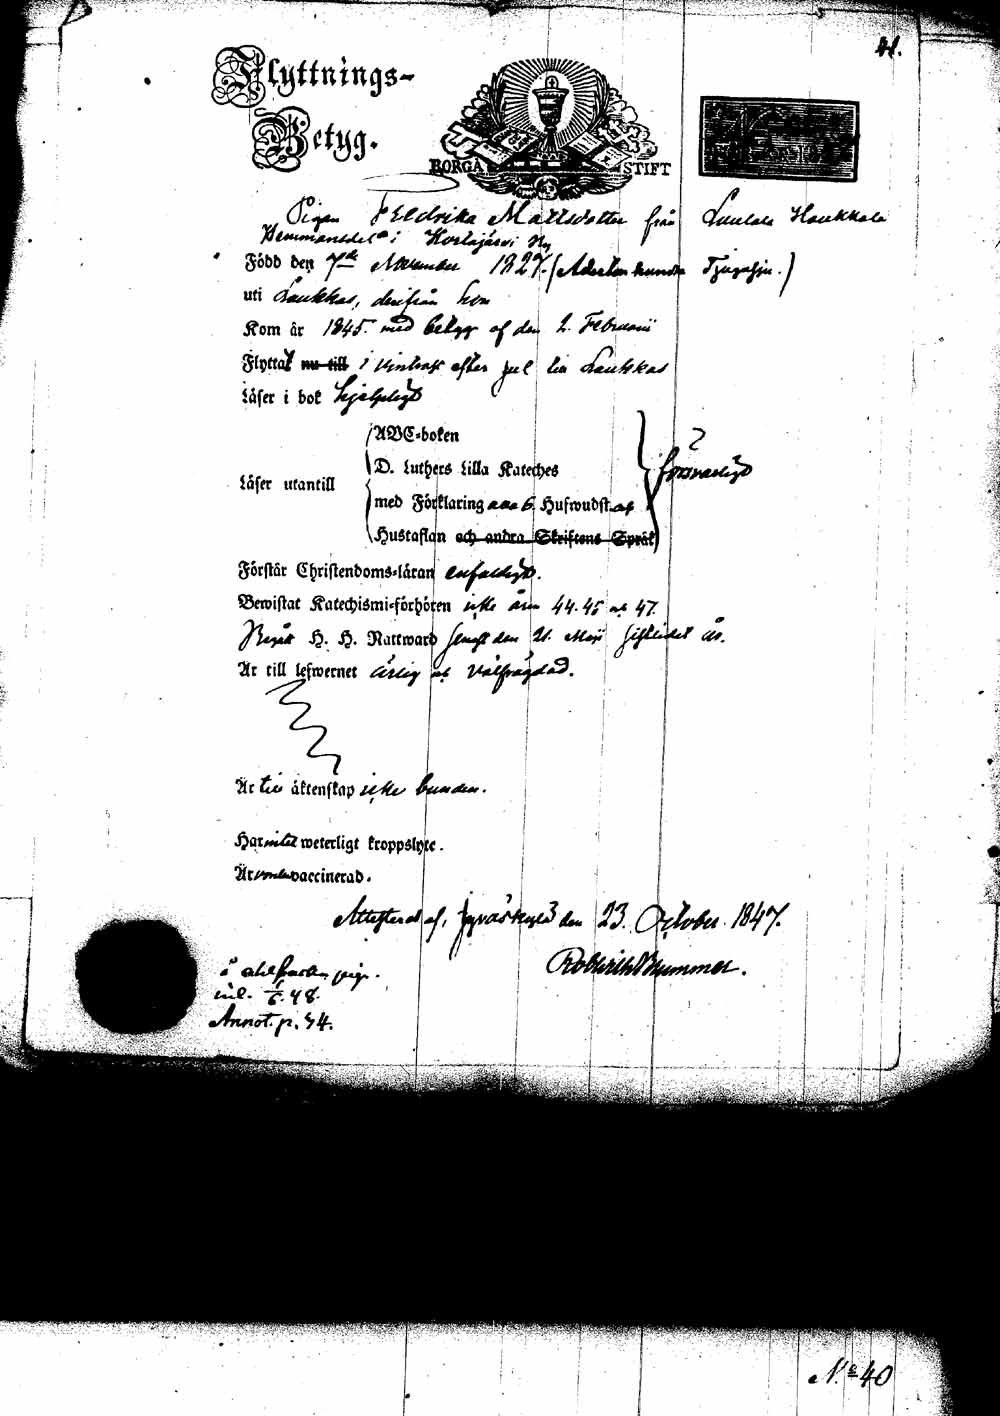 41.
Flyttnings-
Betyg.
BORGÅ STIFT
Pigan Fredrika Mattsdotter från Haukkala
Hemmansdel i Kortajärvi By
Född den 7de November 1827. (Adertonhundra Tjugusju.)
uti Laukkas, derifrån hon
Kom år 1845. med betyg af den 2. Februarii
Flyttat nu till i vintras efter jul till Laukkas
Läser i bok hjelpligt
Läser utantill
ABC-boken
D. Luthers Lilla Kateches
med Förklaring 6. Hufwudst. och
Hustaflan och andra Skriftens Språk
försvarligt
Förstår Christendoms-läran enfaldigt.
Bewistat Katechismi-förhören icke åren 44. 45 och 47.
Begått H. H. Nattward senast den 21. Maji sistledet år.
Är till lefwernet ärlig och välfrägdad.
Är till äktenskap icke bunden.
Har intet weterligt kroppslyte.
Är vaccinerad.
Attesterad af, Jyväskylä den 23. October 1847.
Brummer.
inl. 1/6. 48.
Annot. p. 54.
N:o 40